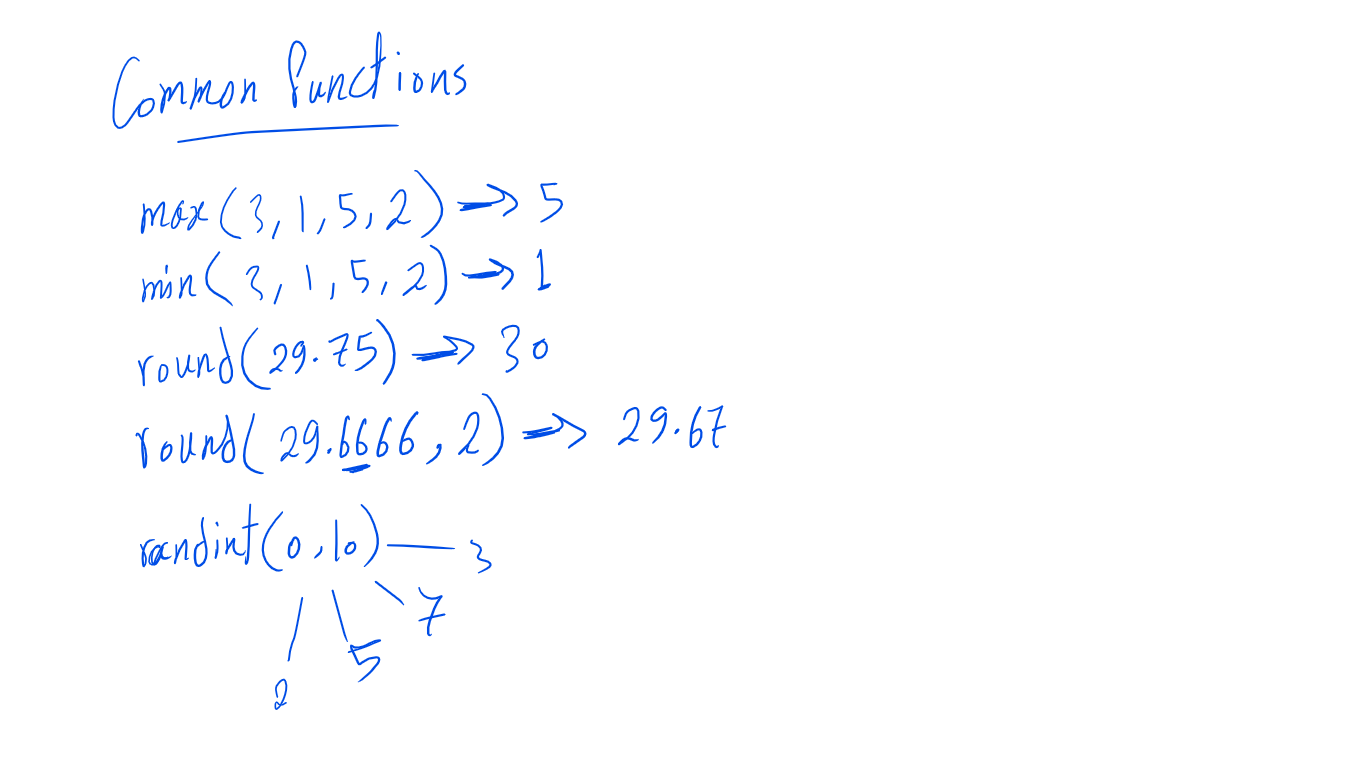 Common functions
max(3,1,5,2) → 5
min(3,1,5,2) → 1
round(29.75) → 30
round(29.6666,2) → 29.67
randint(0,10) — 3
7
5
2